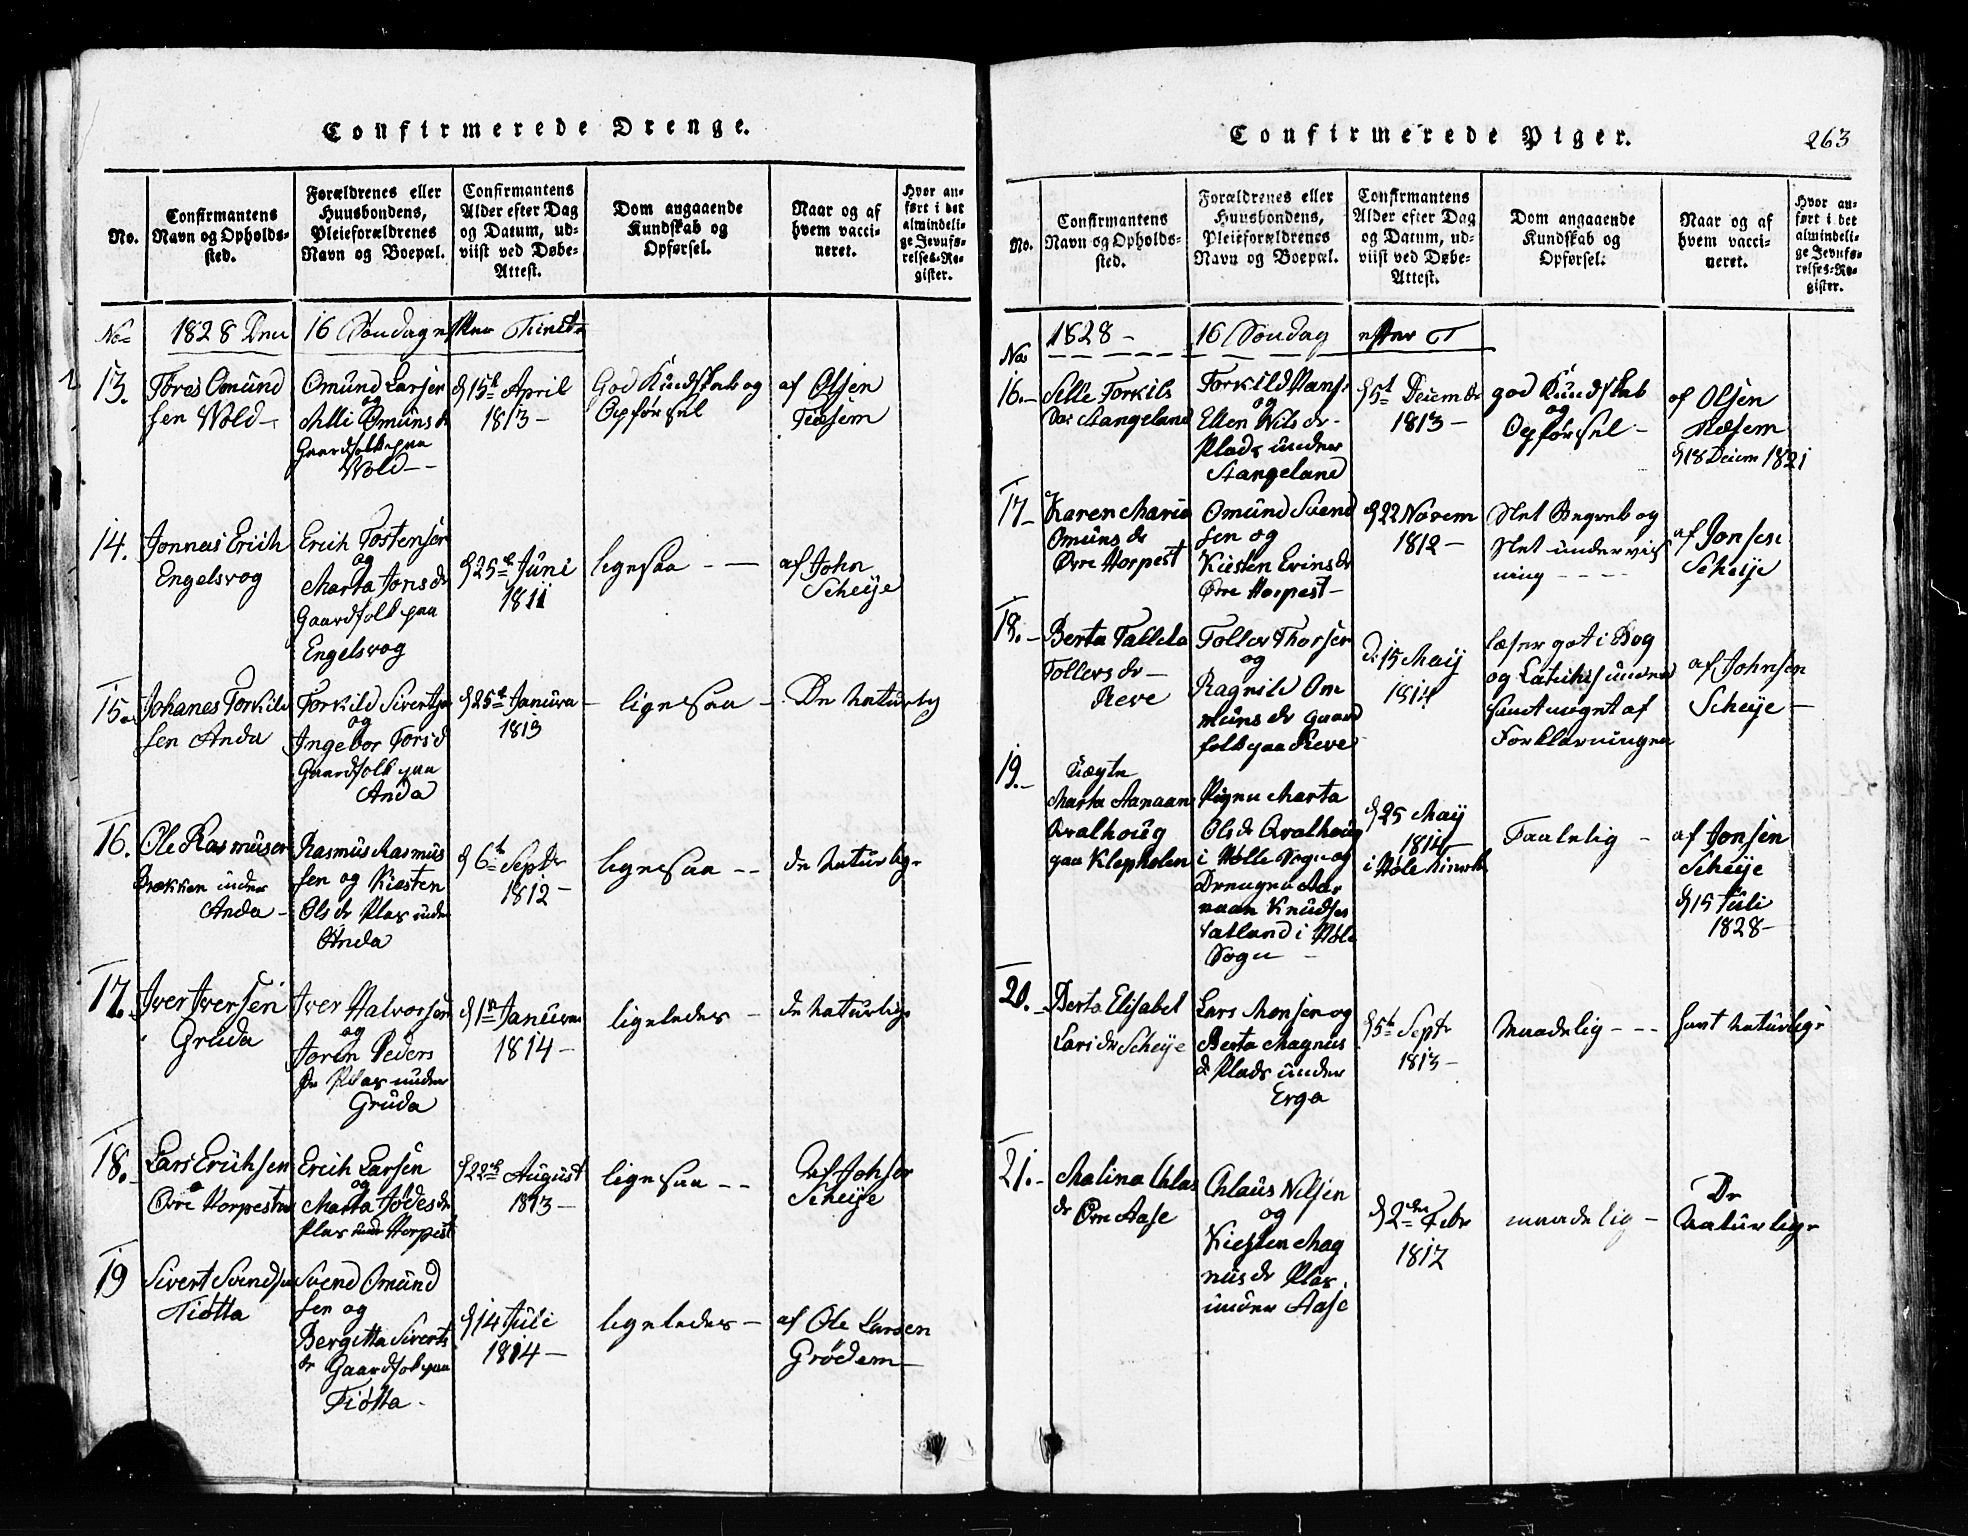 Confirmerede Drenge.
No.
Confirmantens
Navn og Opholds-
sted.
Forældrenes eller
Huusbondens,
Pleieforældrenes
Navn og Boepæl.
Confirmantens
Alder efter Dag
og Datum, ud-
viist ved Døbe-
Attest.
Dom angaaende
Kundskab og
Opførsel.
Naar og af
hvem vacci-
neret.
Hvor an-
ført i det
almindeli-
ge Jevnfø-
relses-Re-
gister.
No 1828 Den 16 Søndag efter Trinita
13.
Tores Omund
sen Wold
Omund Larsen
og
Alli Omunsdr
Gaardfolk paa
Wold
d 15t April
1813
God Kundskab og
Opførsel
af Olsen
14.
Jonnas Erich
Engelsvog
Erich Tostensen
og
Marta Jonsdr
Gaardfolk paa
Engelsvog
d 25t Juni
1811
ligesaa
af John
Scheije
15.
Johanes Torkild
sen Anda
Torkild Sivertsen
og
Ingebor Torsd
Gaardfolk paa
Anda
d 25t Januar
1813
ligesaa
De naturlig
16.
Ole Rasmusen
Bækken under
Anda
Rasmus Rasmus
sen og Kiesten
Olsdr Plas under
Anda
d 6t Septr
1812
ligesaa
de naturlig
17.
Iver Iversen
Gruda
Iver Halvorsen
og
Joren Peders
dr Plas under
Gruda
d 1n Januar
1814
ligeledes
de naturlig
18.
Lars Erichsen
Øvre Horpestad
Erich Larsen
og
Marta Jødesdr
Plas under Horpest
d 22d August
1813
ligesaa
af Johsen
Scheije
19
Sivert Svendsen
Tiøtta
Svend Omund
sen og
Bergitta Siverts
dr Gaardfolk paa
Tiøtta
d 14 Juli
1814
ligeledes
af Ole Larsen
Grødem
Confirmerede Piger.
263
No.
Confirmantens
Navn og Opholds-
sted.
Forældrenes eller
Huusbondens,
Pleieforældrenes
Navn og Boepæl.
Confirmantens
Alder efter Dag
og Datum, ud-
viist ved Døbe-
Attest.
Dom angaaende
Kundskab og
Opførsel.
Naar og af
hvem vacci-
neret.
Hvor an-
ført i det
almindeli-
ge Jevnfø-
relses-Re-
gister.
No 1828 16 Søndag efter T
16.
Sille Torkils
Dr Stangeland
Torkild Hans
og
Ellen Nilsdr
Plads under
Stangeland
d 5t Deiembr
1813
god Kundskab
og
Opførsel
af Olsen
Næsem
d 18 Deiem 1821
17
Karen Maria
Omunsdr
Øvre Horpest
Omund Svend
sen og
Kiesten Evinsdr
Øvre Horpest
d 22 Novem
1812
Slet Begreb og
Slet undervis
ning
af Jonsen
Scheije
18.
Berta Tallela
Tollersdr
Reve
Tollev Thorsen
og
Ragnile Om
munsdr Gaard
folk paa Reve
d 15 Maij
1814
læser got i Bog
og Catichis under
samt noget af
Forklaringen
af Johnsen
Scheije
19.
Uægte
Marta Aanaans
Qvalhoug
paa Klepholen
Pigen Marta
Olsdr Qvalhoug
i Hølle Sogn og
Drengen Aar
naan Knudsen
Satland i Høle
Sogn
d 25 Maij
1814
i Høle Kirke
Taalelig
af Jonsen
Scheije
d 15 Juli
1828
20.
Berta Elisabet
Larsdr Scheije
Lars Monsen og
Berta Magnus
dr Plads under
Erga
d 5t Septr
1813
Maadelig
hart naturlig
21.
Malina Clas
dr Øvre Aase
Claus Nilsen
og
Kiesten Mag
nusdr Plas
under Aase
d 2den Febr
1812
maadelig
De
naturlig